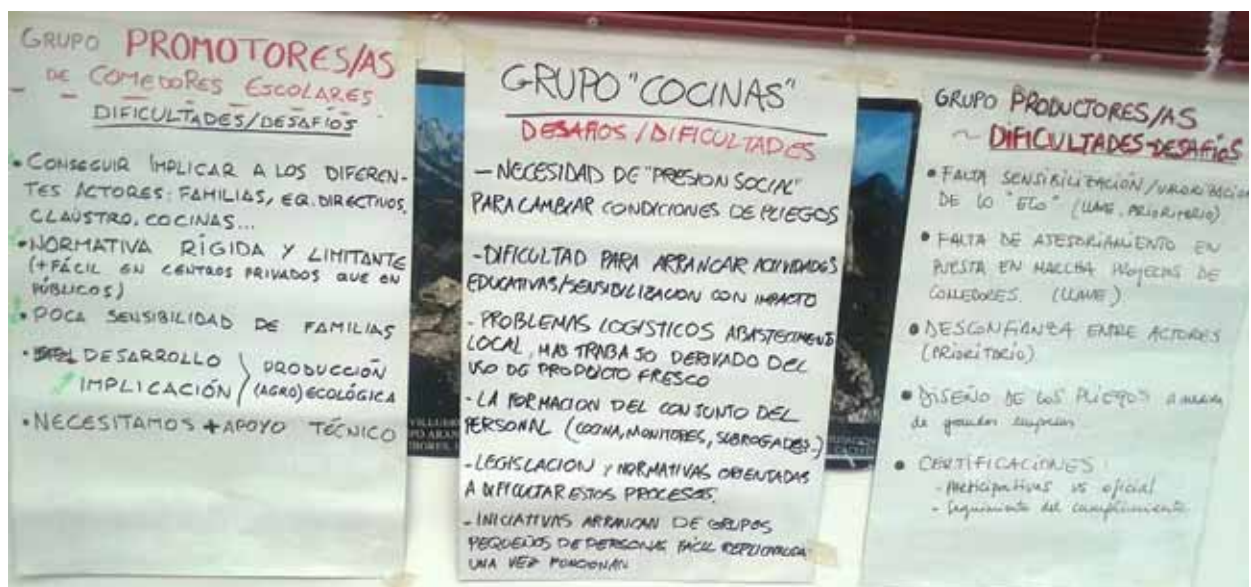 GRUPO PROMOTORES/AS
DE COMEDORES ESCOLARES
DIFICULTADES/DESAFÍOS
• CONSEGUIR IMPLICAR A LOS DIFEREN-
TES ACTORES: FAMILIAS, EQ. DIRECTIVOS,
CLAUSTRO, COCINAS...
• NORMATIVA RÍGIDA Y LIMITANTE
(+ FÁCIL EN CENTROS PRIVADOS QUE EN
PÚBLICOS)
• POCA SENSIBILIDAD DE FAMILIAS
• DESARROLLO PRODUCCIÓN
IMPLICACIÓN (AGRO)ECOLÓGICA
• NECESITAMOS + APOYO TÉCNICO
GRUPO "COCINAS"
DESAFIOS/DIFICULTADES
- NECESIDAD DE "PRESION SOCIAL"
PARA CAMBIAR CONDICIONES DE PLIEGOS
- DIFICULTAD PARA ARRANCAR ACTIVIDADES
EDUCATIVAS/SENSIBILIZACION CON IMPACTO
- PROBLEMAS LOGISTICOS ABASTECIMIENTO
LOCAL, MAS TRABAJO DERIVADO DEL
USO DE PRODUCTO FRESCO
- LA FORMACION DEL CONJUNTO DEL
PERSONAL (COCINA, MONITORES, SUBROGADES..)
- LEGISLACION Y NORMATIVAS ORIENTADAS
A DIFICULTAR ESTOS PROCESOS.
- INICIATIVAS ARRANCAN DE GRUPOS
PEQUEÑOS DE PERSONAS FÁCIL
UNA VEZ FUNCIONAN
GRUPO PRODUCTORES/AS
~ DIFICULTADES-DESAFÍOS
• FALTA SENSIBILIZACIÓN/VALORIZACION
DE LO "ECO" (LLAVE, PRIORITARIO)
• FALTA DE ASESORIAMIENTO EN
PUESTA EN MARCHA PROYECTOS DE
COMEDORES. (LLAVE)
• DESCONFIANZA ENTRE ACTORES
(PRIORITARIO)
• DISEÑO DE LOS PLIEGOS a
de grandes empresas
• CERTIFICACIONES:
- Participativas vs oficial
- Seguimiento del cumplimiento